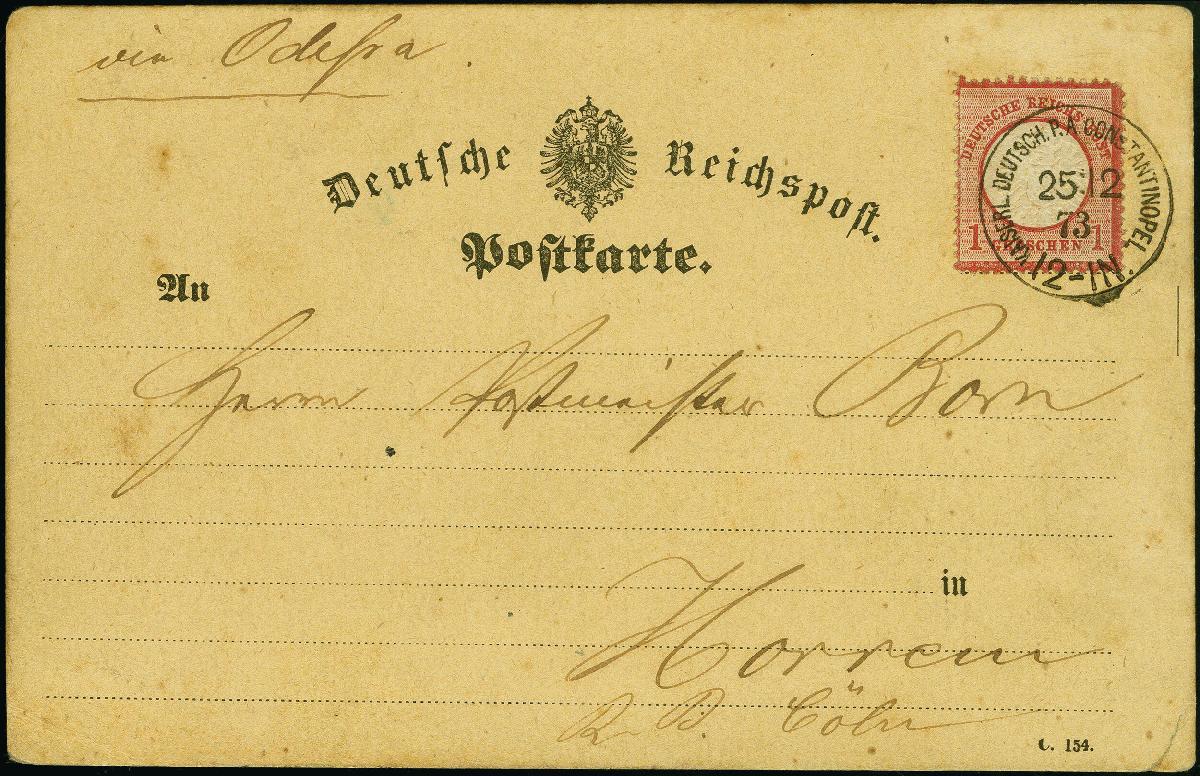 via Odessa.
Deutsche Reichspost.
Postkarte.
DEUTSCHE REICHS-POST
1 GROSCHEN 1
KAISERL. DEUTSCH. P.A. CONSTANTINOPEL
25 12
73
12-1N.
An
Herrn Postmeister Born
in
Horrem
R. B. Cöln
C. 154.